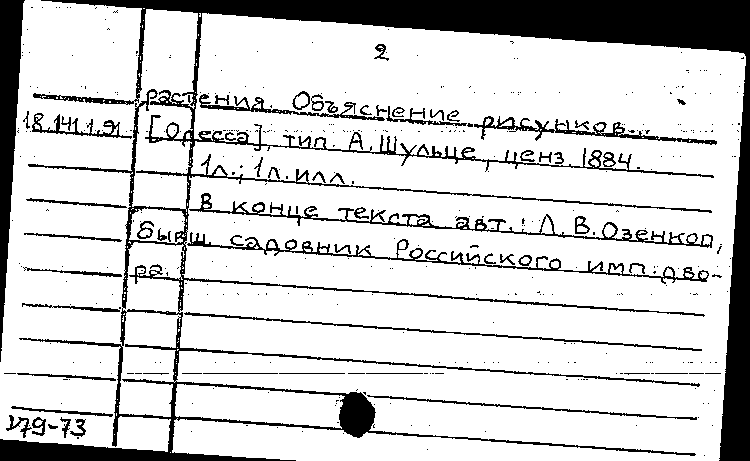 2
растения. Объяснение рисунков...
18.141.1.91 [Одесса], тип. А. Шульце, ценз. 1884.
1л.; 1л. илл.
В конце текста авт.: Л.В. Озенкоп,
бывш. садовник Российского имп. дво-
ра.
V79-73